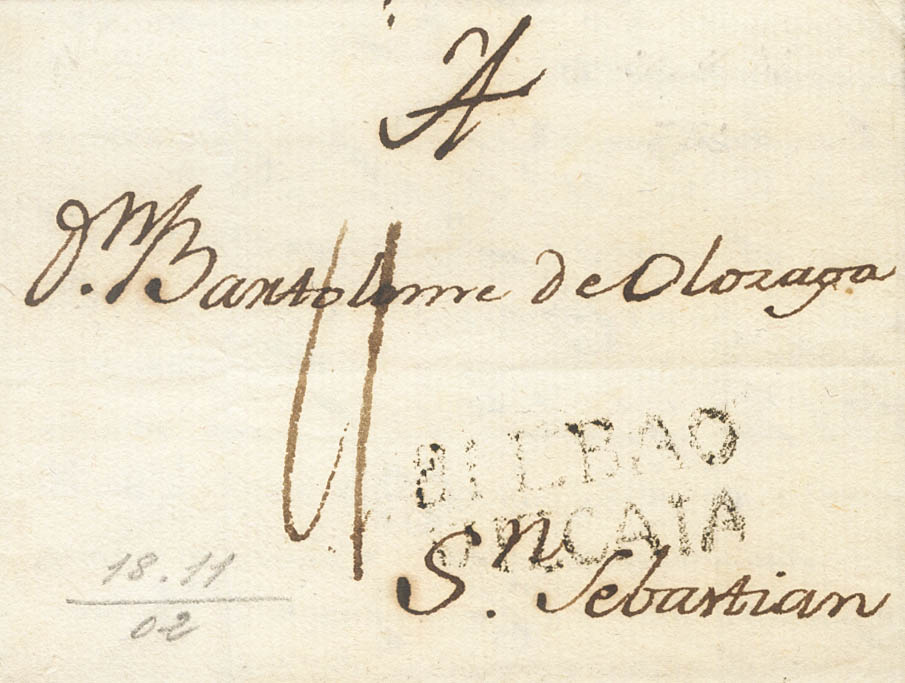 A
Dn. Bartolome de Olozaga
4
BILBAO
VIZCAIA
Sn. Sebastian
18.11
02